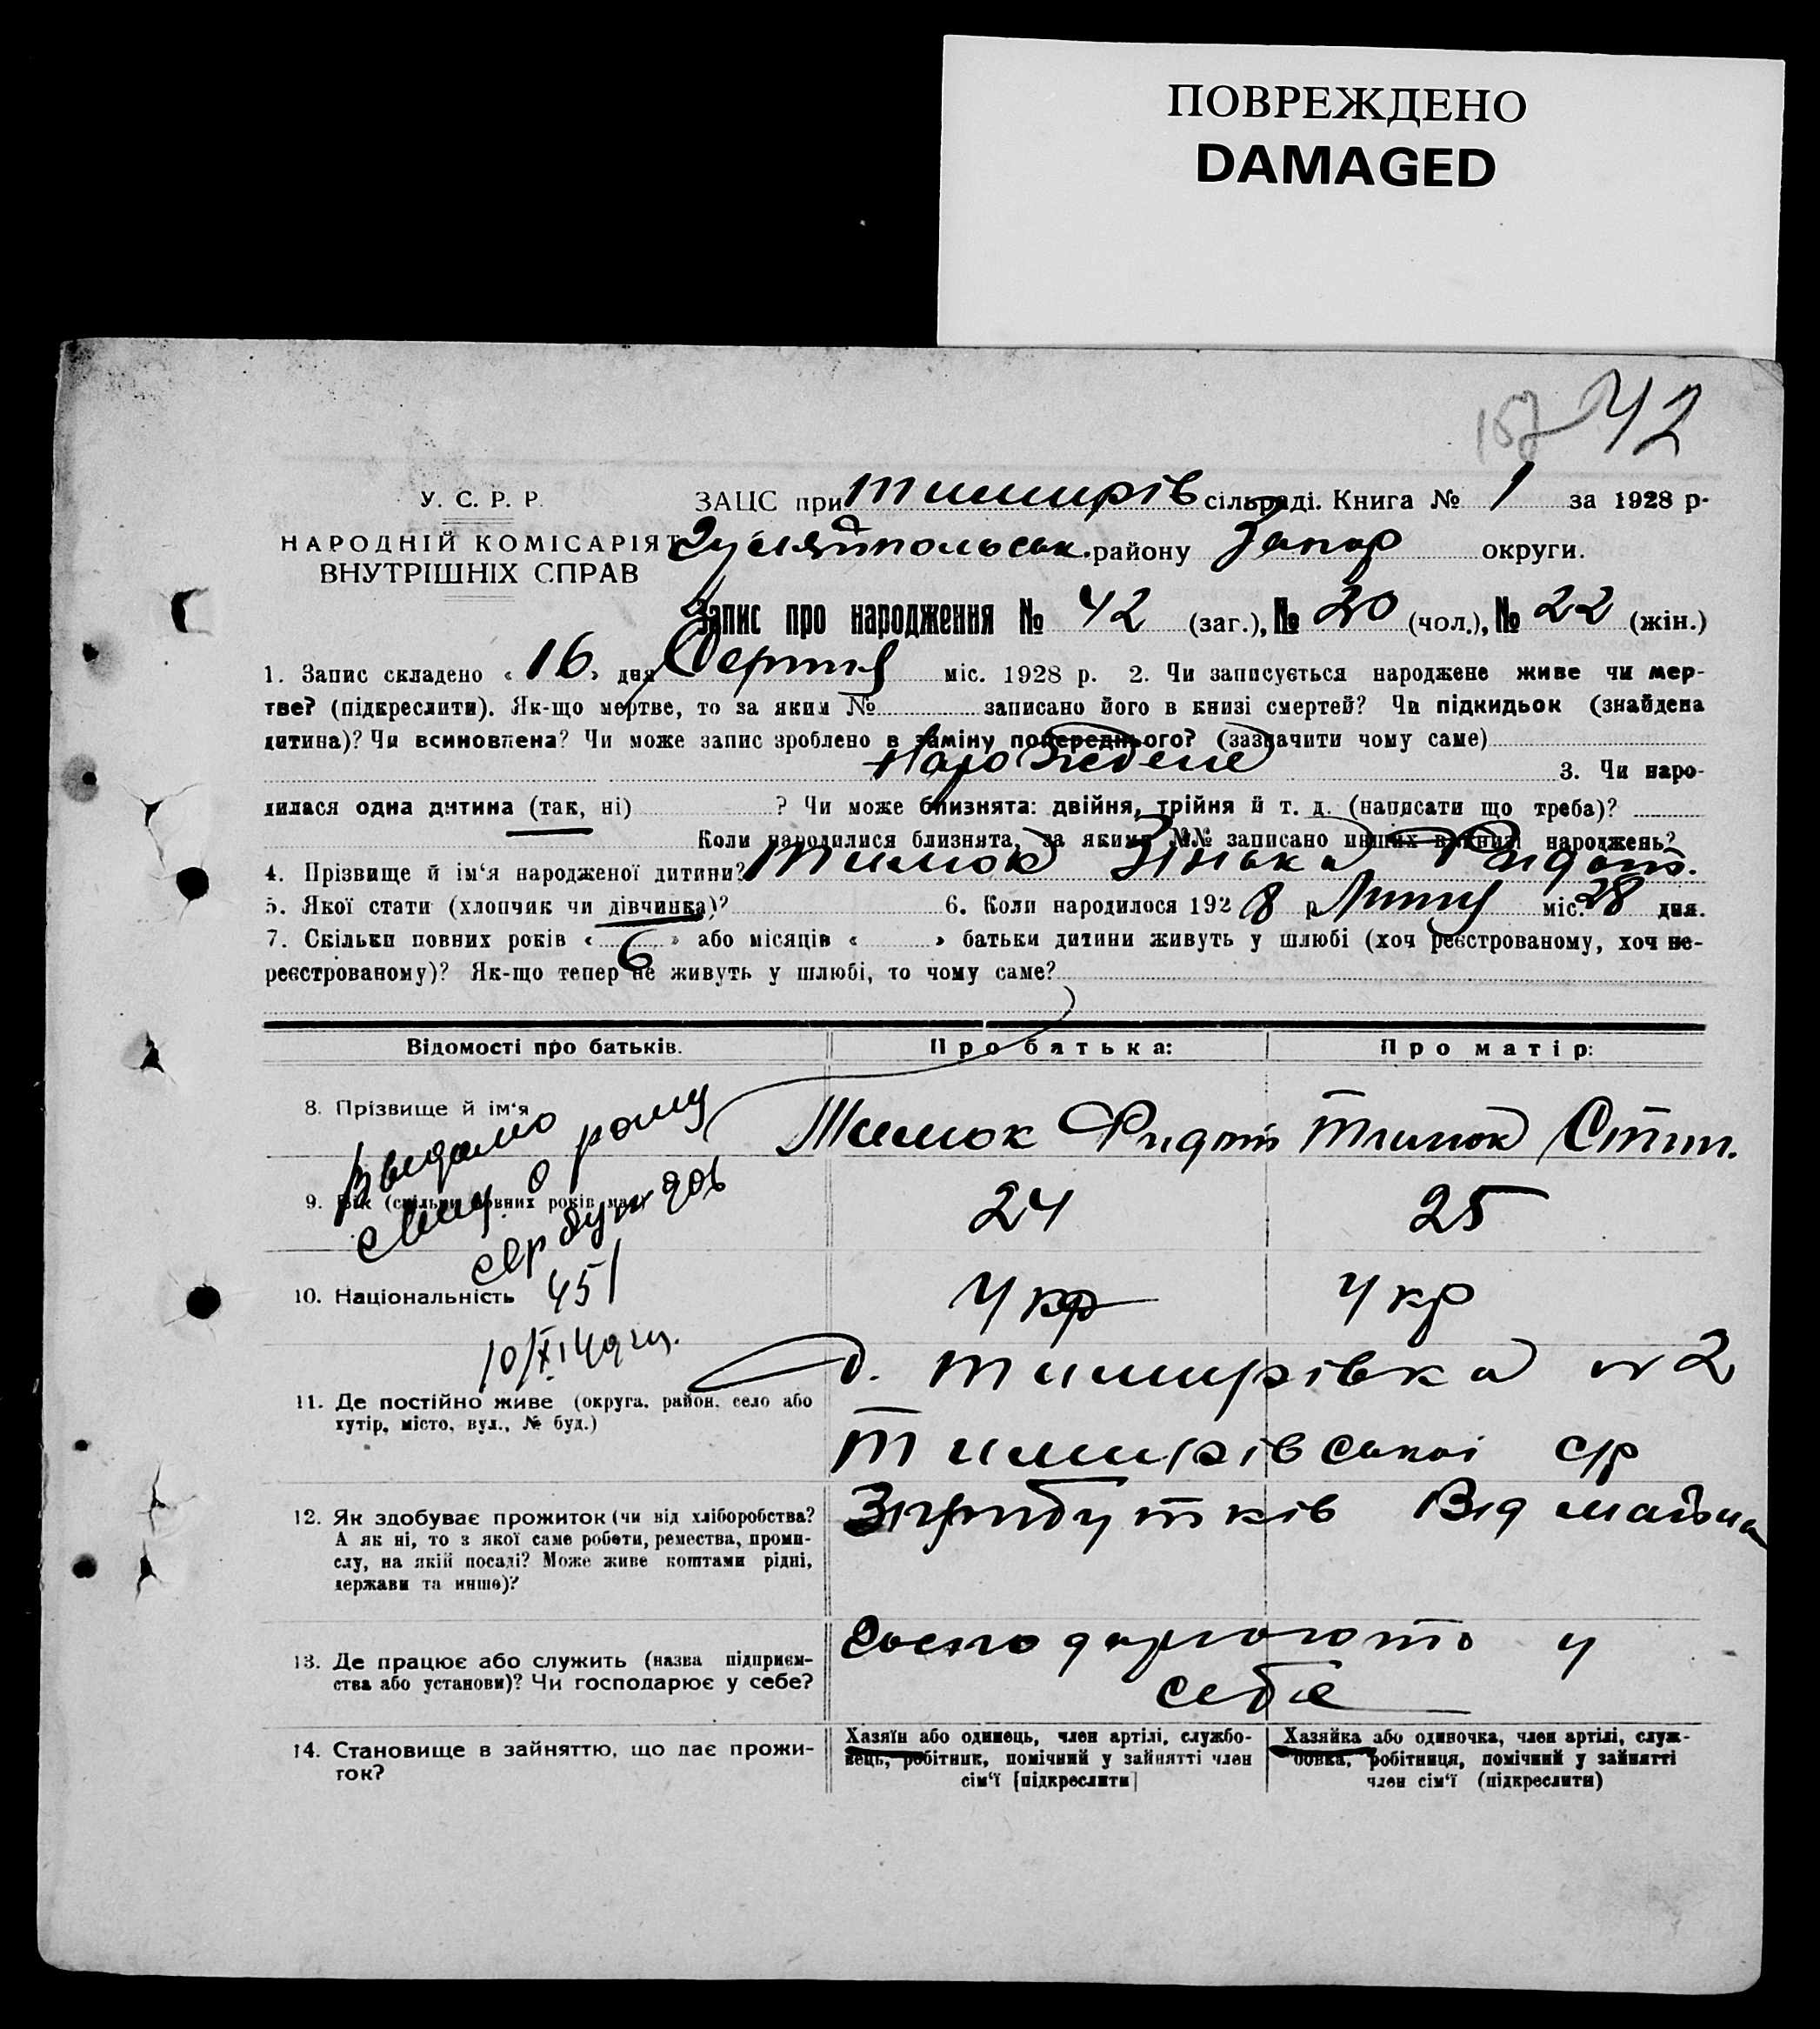 ПОВРЕЖДЕНО
DAMAGED
42
У. С. Р. Р.
НАРОДНІЙ КОМІСАРІЯТ
ВНУТРІШНІХ СПРАВ
ЗАЦС при Тимирів сільраді. Книга № 1 за 1928 р.
Гуляйпольськ. району Запор округи.
Запис про народження № 42 (заг.), № 20 (чол.), № 22 (жін.)
1. Запис складено « 16 » дня Серпня міс. 1928 р. 2. Чи записується народжене живе чи мер-
тве? (підкреслити). Як-що мертве, то за яким № записано його в книзі смертей? Чи підкидьок (знайдена
дитина)? Чи всиновлена? Чи може запис зроблено в заміну попереднього? (зазначити чому саме)
3. Чи наро-
дилася одна дитина (так, ні) ? Чи може близнята: двійня, трійня й т. д. (написати що треба)?
Коли народилися близнята, за якими №№ записано инших в книзі народжень?
4. Прізвище й ім'я народженої дитини? Тимок Зінька
5. Якої стати (хлопчик чи дівчинка)? 6. Коли народилося 192 8 р Липня міс. 28 дня.
7. Скільки повних років « 6 » або місяців « » батьки дитини живуть у шлюбі (хоч реєстрованому, хоч не-
реєстрованому)? Як-що тепер не живуть у шлюбі, то чому саме?
Відомості про батьків.
Про батька:
Про матір:
8. Прізвище й ім'я
Тимок
Тимок
9. Вік (скільки повних років має)
24
25
10. Національність
Укр
Укр
451
11. Де постійно живе (округа, район, село або
хутір, місто, вул., № буд.)
Тимирівка № 2
Тимирівської с/р
12. Як здобуває прожиток (чи від хліборобства?
А як ні, то з якої саме роботи, ремества, проми-
слу, на якій посаді? Може живе коштами рідні,
держави та инше)?
Від майна
13. Де працює або служить (назва підприєм-
ства або установи)? Чи господарює у себе?
Господарюють у
себе
14. Становище в зайняттю, що дає прожи-
ток?
Хазяїн або одинець, член артілі, службо-
вець, робітник, помічний у зайнятті член
сім'ї [підкреслити]
Хазяйка або одиночка, член артілі, служ-
бовка, робітниця, помічний у зайнятті
член сім'ї (підкреслити)